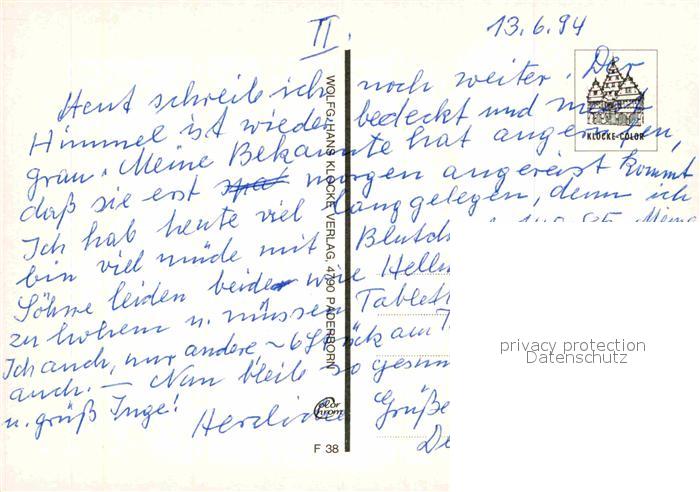 II.
13.6.94
Heut schreib ich noch weiter. Der
Himmel ist wieder bedeckt und
grau. Meine Bekannte hat angerufen,
daß sie erst morgen angereist kommt
Ich hab heute viel langgelegen, denn ich
bin viel müde mit Blutd
Söhne leiden beide wie Hellm
zu hohem u. müssen Tablett
Ich auch, nur andere ~ 6 Stück am T
auch. — Nun bleib so gesun
u. grüß Inge!
Herzliche Grüße
De
WOLFG. HANS KLOCKE VERLAG, 4790 PADERBORN
KLOCKE-COLOR
color chrom
F 38
privacy protection
Datenschutz